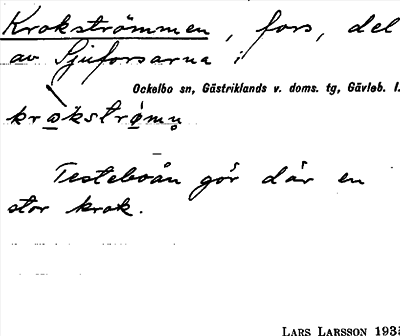 Krokströmmen, fors, del
av Sjuforsarna i
Ockelbo sn, Gästriklands v. doms. tg, Gävleb. l.
krokströmn
Testeboån gör där en
stor krok.
LARS LARSSON 193